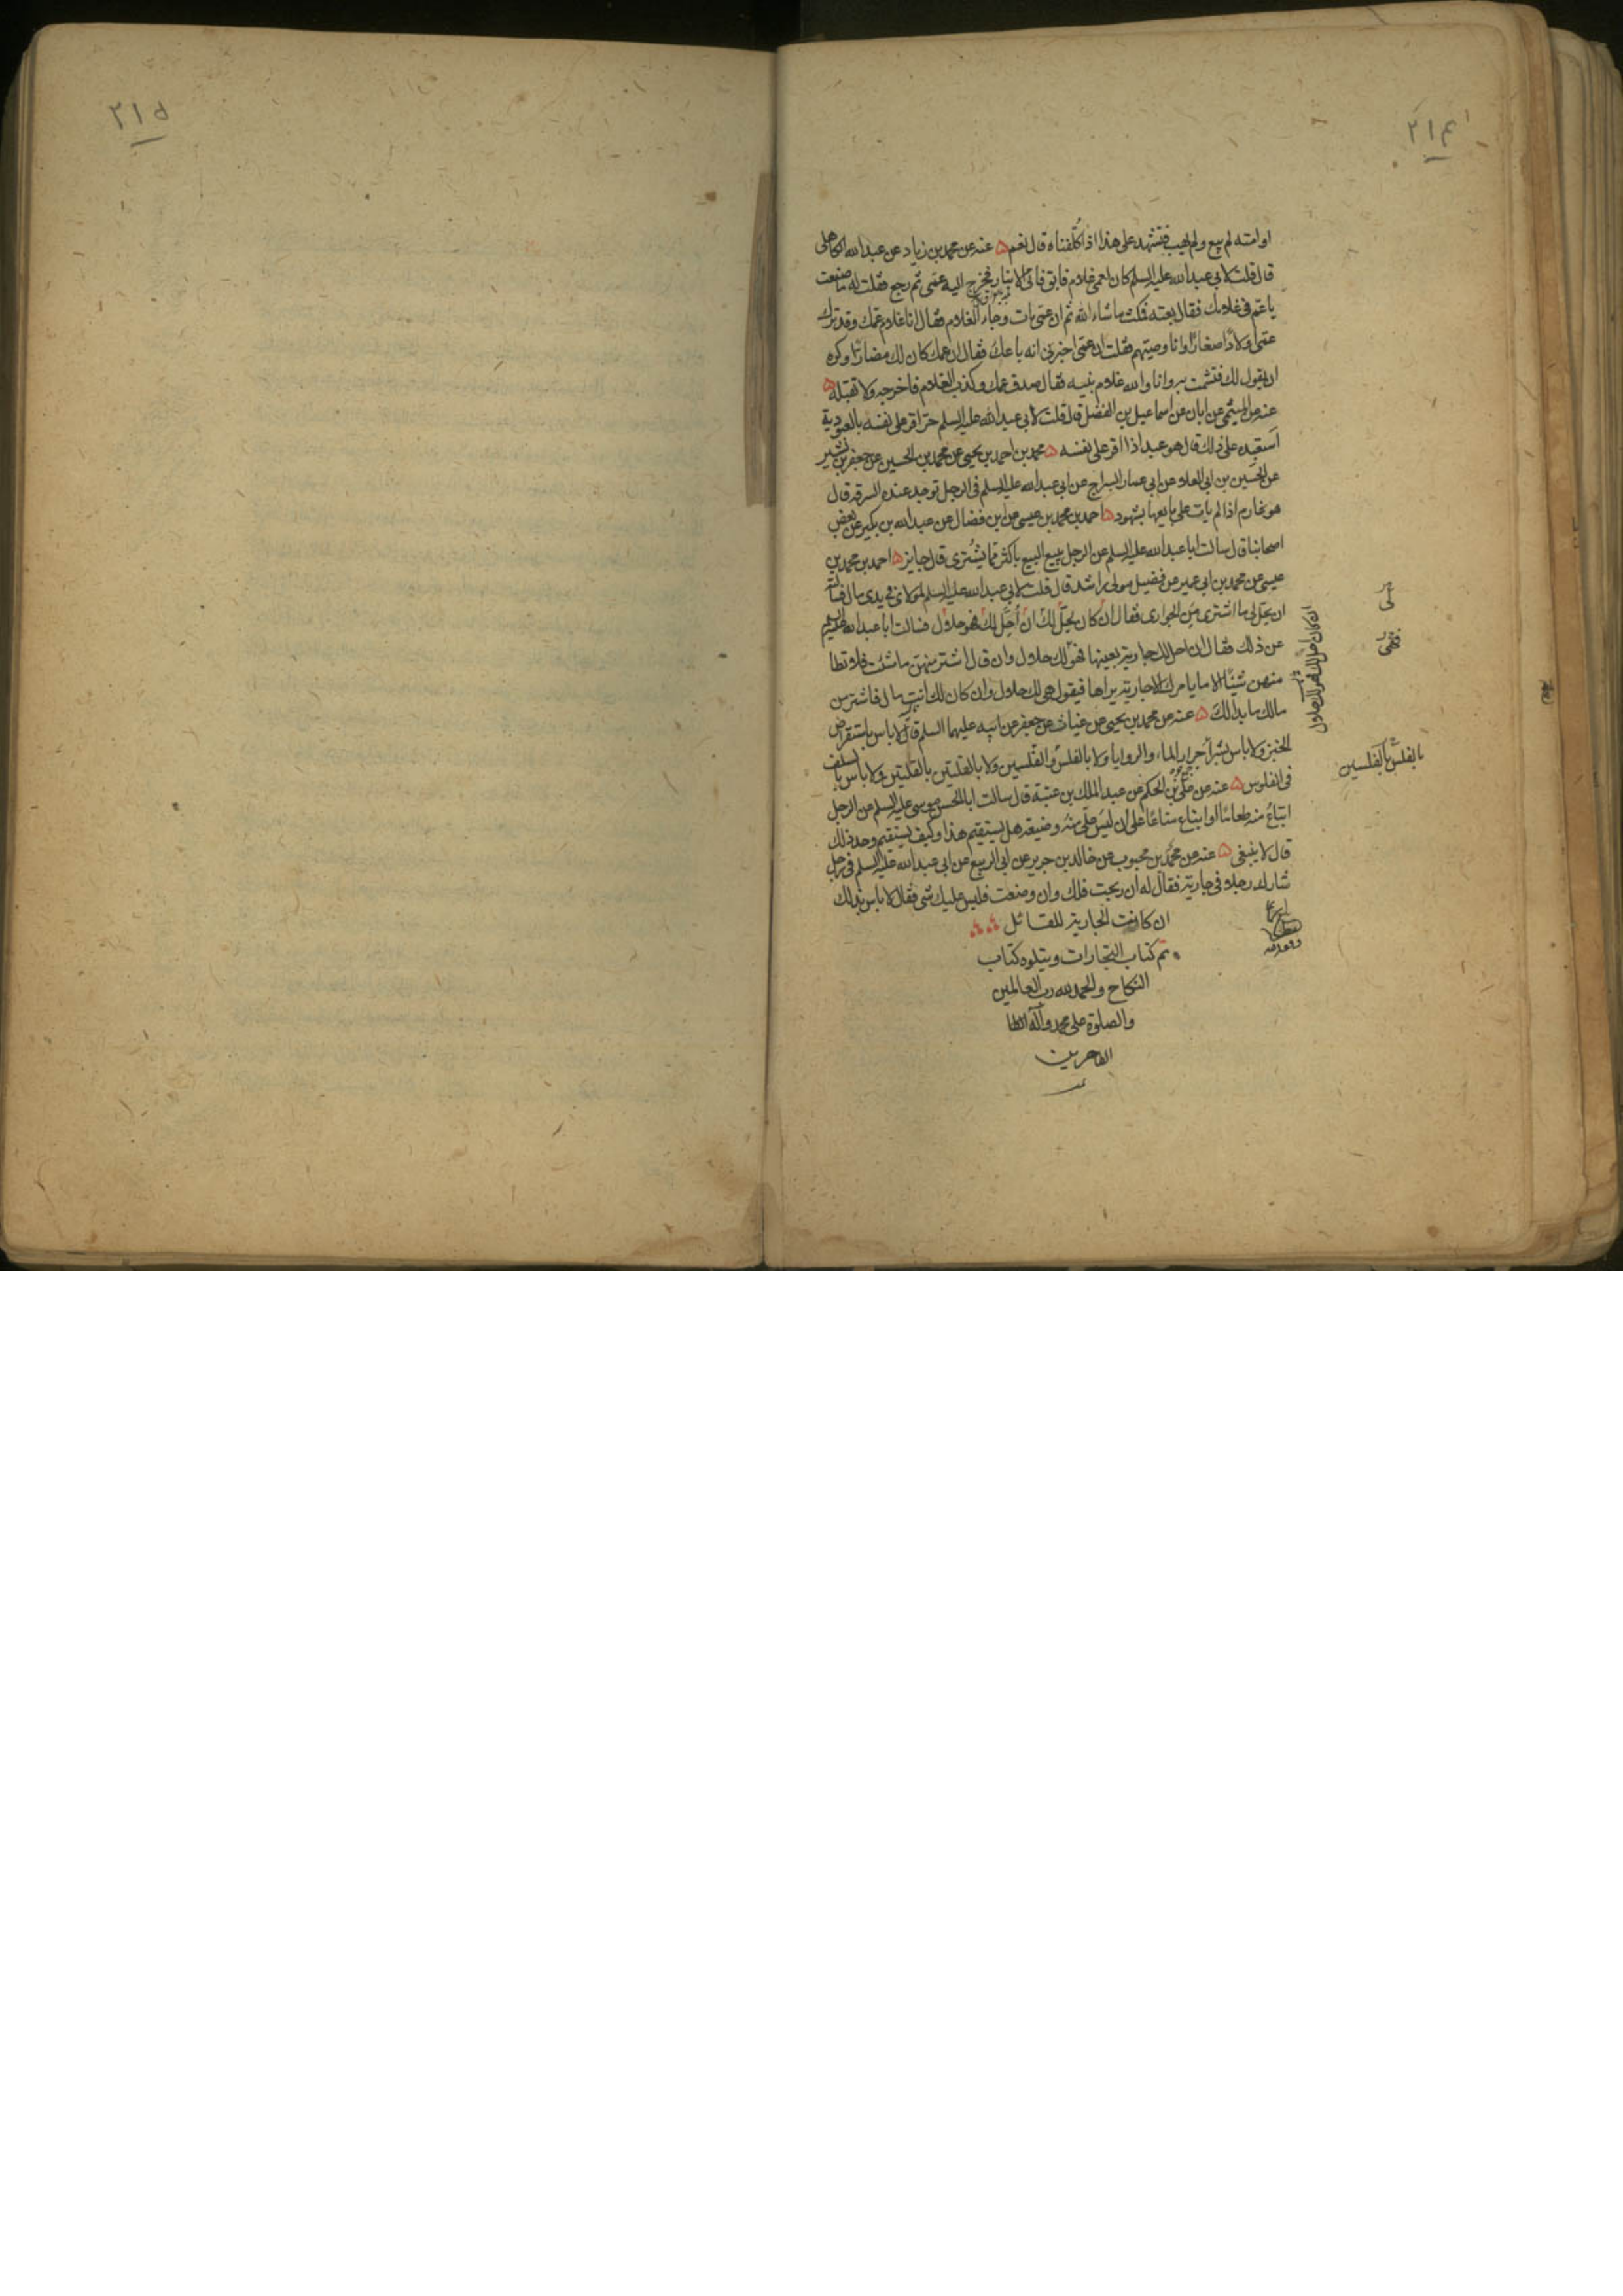 ٢١٤
اوامته لم يبع ولم يهب فتشهد على هذا اذا كلفناه قال نعم ۵ عنه عن محمد بن زياد عن عبد الله الكاهلى
قال قلت لابى عبد الله عليه السلم كان لعمى غلام فابق فاتى الانبار فخرج اليه عمى ثم رجع فقلت له ما صنعت
يا عم فى غلامك فقال بعته فمكث ما شاء الله ثم ان عمى مات وجاء الغلام فقال انا غلام عمك وقد ترك
عمى اولادا صغارا وانا وصيتهم فقلت ان عمى اخبرنى انه باعك فقال ان عمك كان لك مضارا وكره
ان يقول لك فتشمت به وانا والله غلام بنيه فقال صدق عمك وكذب الغلام فاخرجه ولا تقبله ۵
عنه عن الميثمى عن ابان عن اسماعيل بن الفضل قال قلت لابى عبد الله عليه السلم حر اقر على نفسه بالعبودية
استعبده على ذلك قال هو عبد اذا اقر على نفسه ۵ محمد بن احمد بن يحيى عن محمد بن الحسين عن جعفر بن بشير
عن الحسين بن ابى العلاء عن ابى عمار السراج عن ابى عبد الله عليه السلم فى الرجل توجد عنده السرقة قال
هو غارم اذا لم يات على بايعها بشهود ۵ احمد بن محمد بن عيسى عن ابن فضال عن عبد الله بن بكير عن بعض
اصحابنا قال سالت ابا عبد الله عليه السلم عن الرجل يبيع البيع باكثر مما يشترى قال جايز ۵ احمد بن محمد بن
عيسى عن محمد بن ابى عمير عن فضيل مولى راشد قال قلت لابى عبد الله عليه السلم لمولاى فى يدى مال فسالته
ان يحل لى ما اشترى من الجوارى فقال ان كان يحل لك ان احل لك فهو حلال فسالت ابا عبد الله عليه السلم
عن ذلك فقال ان احل لك جارية بعينها فهو لك حلال وان قال اشتر منهن ما شئت فلا تطا
منهن شيئا الا ما يامرك الا جارية يراها فيقول هى لك حلال وان كان لك انت مال فاشتر من
مالك ما بدا لك ۵ عنه عن محمد بن يحيى عن غياث عن جعفر عن ابيه عليهما السلم قال لا باس باستقراض
الخبز ولا باس بشرا جرار الماء والروايا ولا بالفلس والفلسين ولا بالقلتين بالقلتين ولا باس بالسلف
فى الفلوس ۵ عنه عن على بن الحكم عن عبد الملك بن عتبة قال سالت ابا الحسن موسى عليه السلم عن الرجل
ابتاع منه طعاما او ابتاع متاعا على ان ليس على منه وضيعة هل يستقيم هذا وكيف يستقيم وحد ذلك
قال لا ينبغى ۵ عنه عن محمد بن محبوب عن خالد بن جرير عن ابى الربيع عن ابى عبد الله عليه السلم فى رجل
شارك رجلا فى جارية فقال له ان ربحت فلك وان وضعت فليس عليك شى فقال لا باس بذلك
ان كانت الجارية للقائل
تم كتاب التجارات ويتلوه كتاب
النكاح والحمد لله رب العالمين
والصلوة على محمد وآله الطا
الطاهرين
ان كان احل لك فهو لك حلال
بالفلس بالفلسين
٢١٥